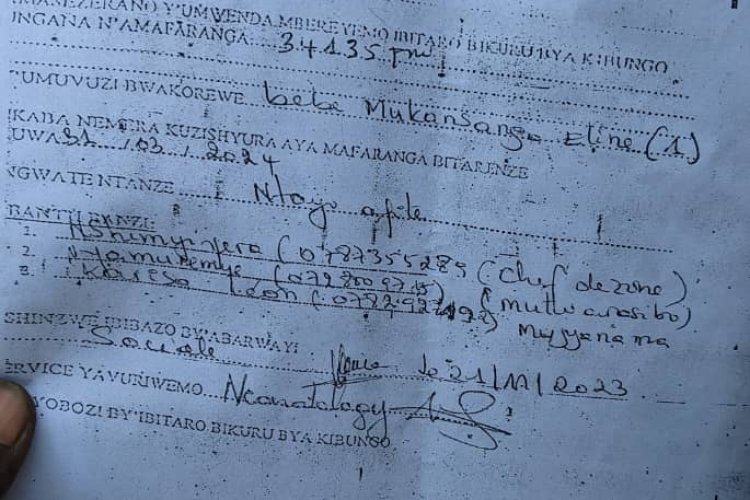 AMASEZERANO Y'UMWENDA MBEREYEMO IBITARO BIKURU BYA KIBUNGO
UNGANA N'AMAFARANGA 34135 frw
UBUVUZI BWAKOREWE bebe Mukansanga Eline (1)
NKABA NEMERA KUZISHYURA AYA MAFARANGA BITARENZE
KUWA 31/03/2024
INGWATE NTANZE Ntayo afite
ABANTU BANZI:
1. Nshimiyera (0787355289 (chef de zone)
2. Nyamuremye (mutwarasibo)
3. Karese Léon (Mujyanama
USHINZWE IBIBAZO BY'ABARWAYI
Sociale le 21/11/2023
SERVICE YAVURIWEMO Neonatology
UMUYOBOZI BY'IBITARO BIKURU BYA KIBUNGO